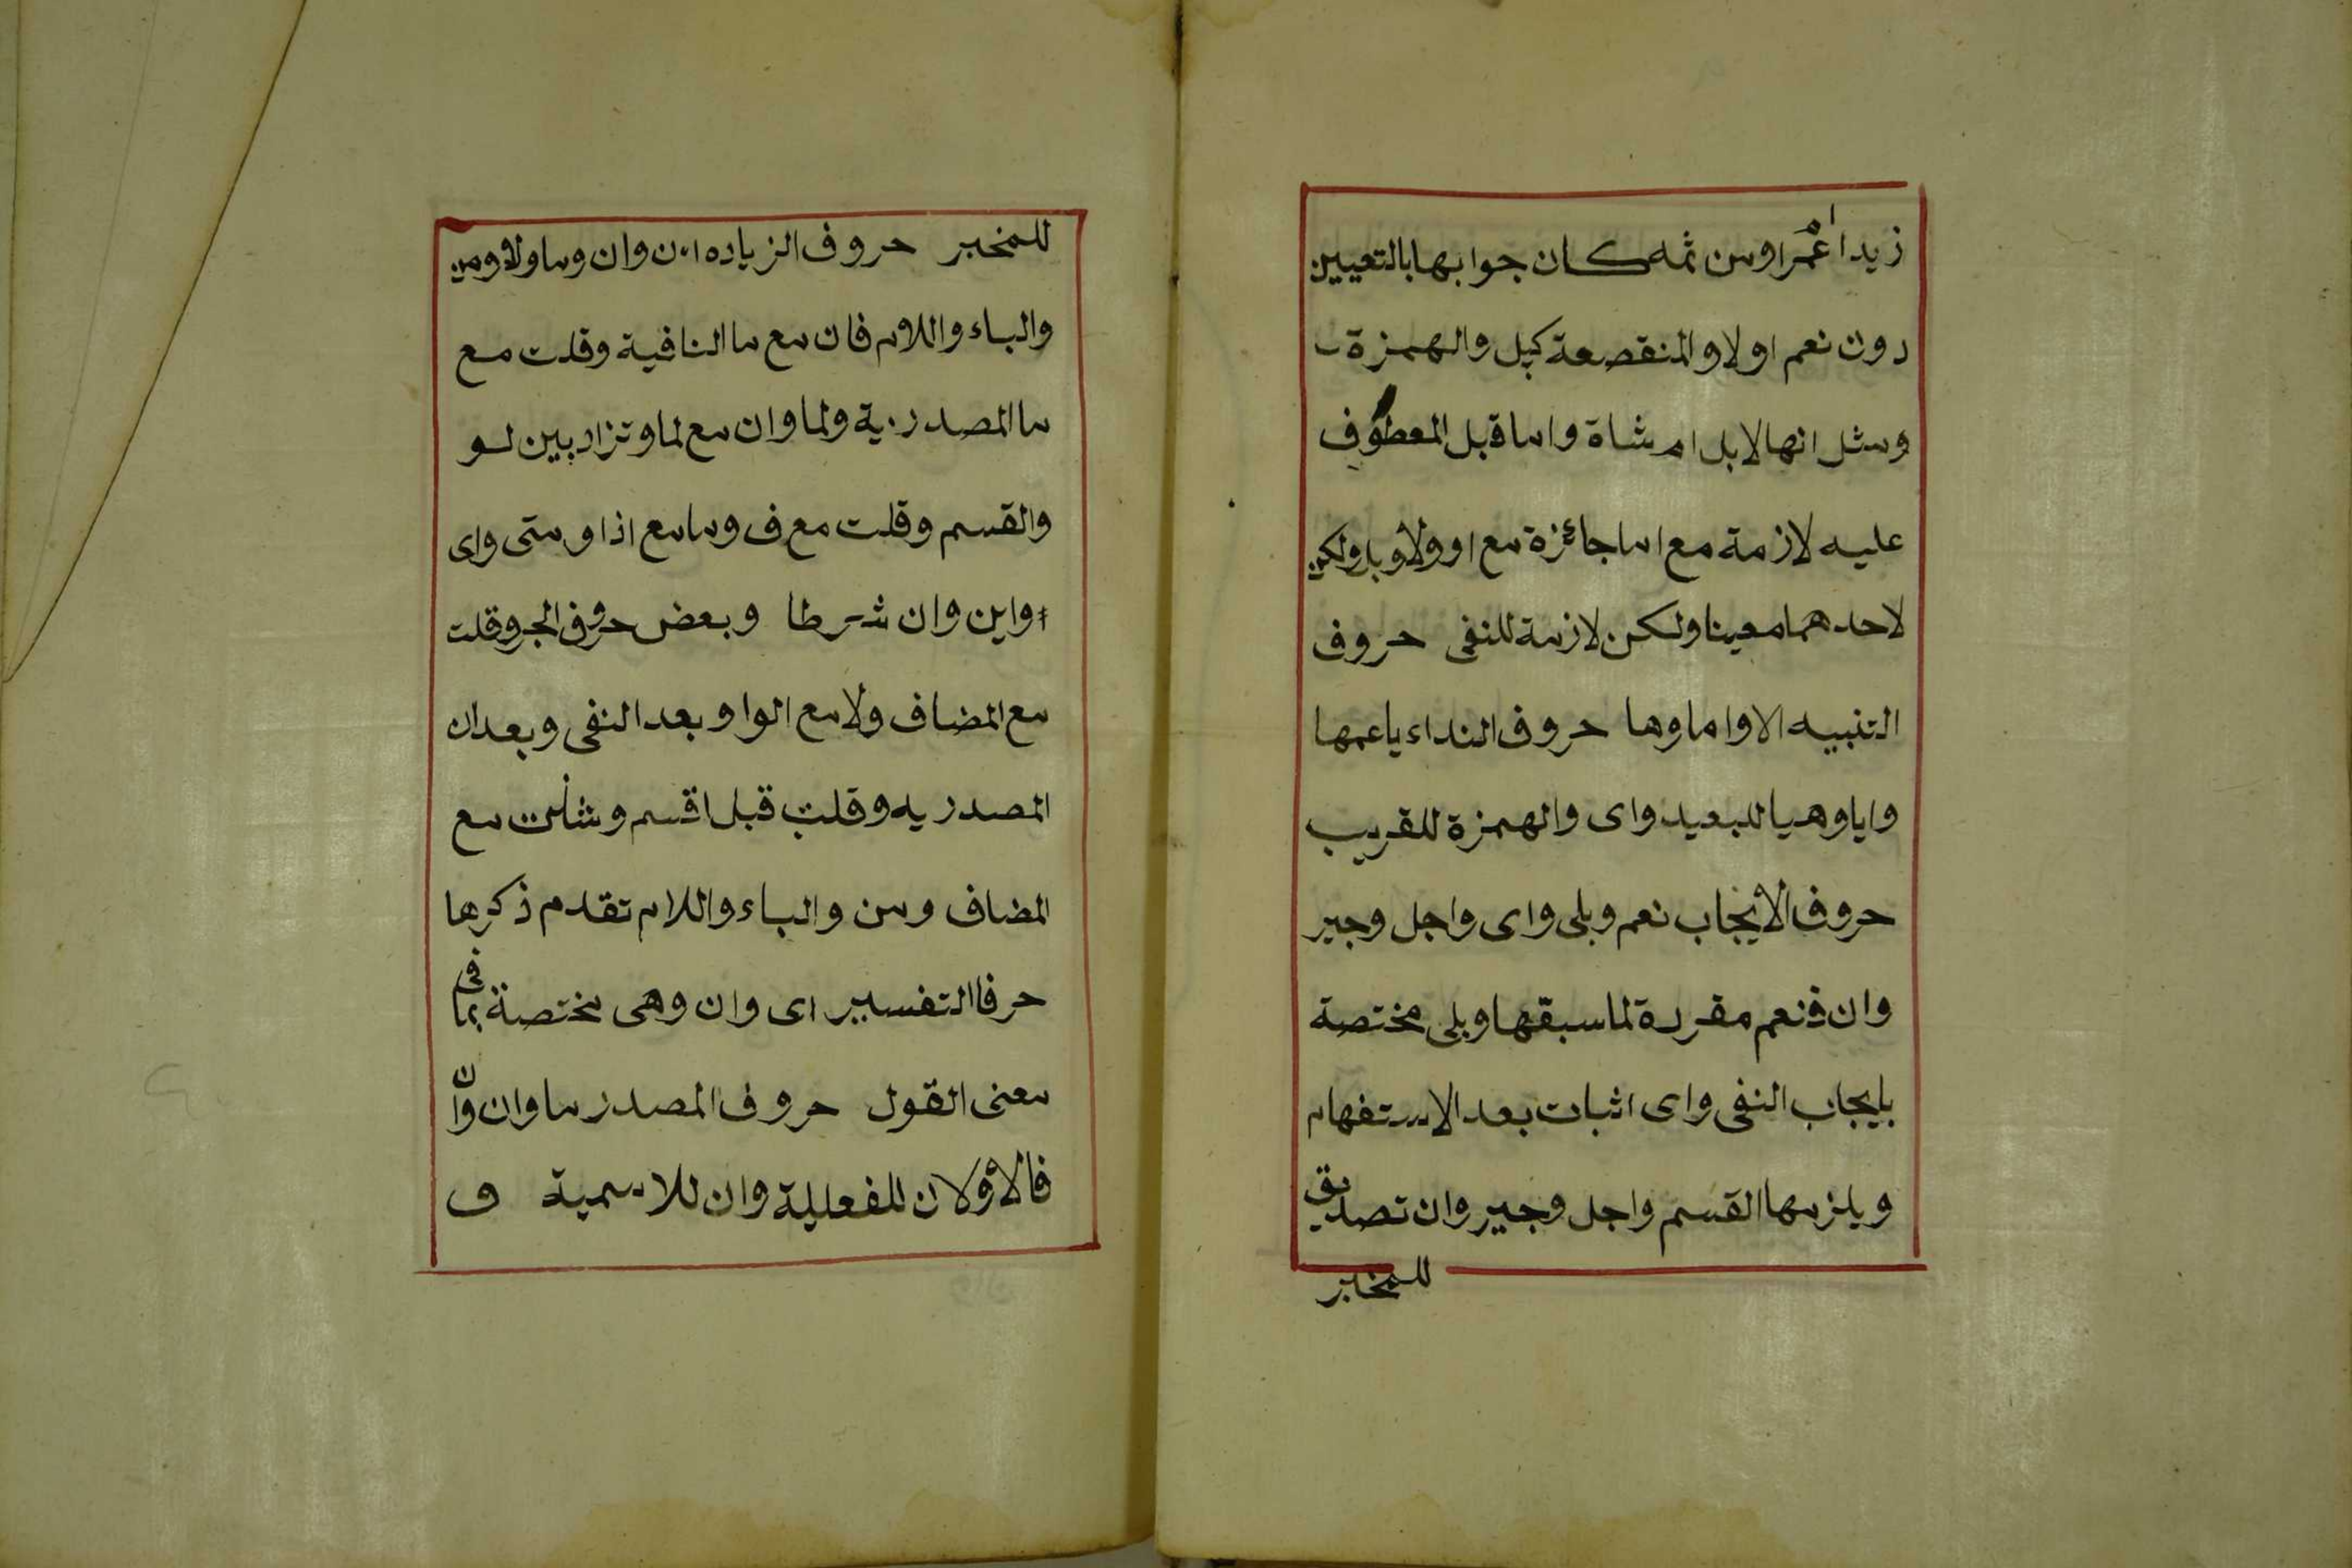 زيدا ام عمرا ومن ثمه كان جوابها بالتعيين
دون نعم اولا والمنقصعة كبل والهمزة
ومثل انها لابل ام شاة واما قبل المعطوف
عليه لازمة مع اما جائزة مع او ولا وبل ولكن
لاحدهما معينا ولكن لازمة للنفى حروف
التنبيه الا واما وها حروف النداء يا عمها
وايا وهيا للبعيد واى والهمزة للقريب
حروف الايجاب نعم وبلى واى واجل وجير
وان فنعم مقررة لما سبقها وبلى مختصة
بايجاب النفى واى اثبات بعد الاستفهام
ويلزمها القسم واجل وجير وان تصديق
للمخبر
للمخبر حروف الزياده ان وان وما ولا ومن
والباء واللام فان مع ما النافية وقلت مع
ما المصدرية ولما وان مع لما وتزاد بين لو
والقسم وقلت مع ف وما مع اذا ومتى واى
واين وان شرطا وبعض حروف الجر وقلت
مع المضاف ولا مع الواو بعد النفى وبعد ان
المصدريه وقلت قبل اقسم وشذت مع
المضاف ومن والباء واللام تقدم ذكرها
حرفا التفسير اى وان وهى مختصة بما فى
معنى القول حروف المصدر ما وان وان
فالاولان للفعلية وان للاسمية و